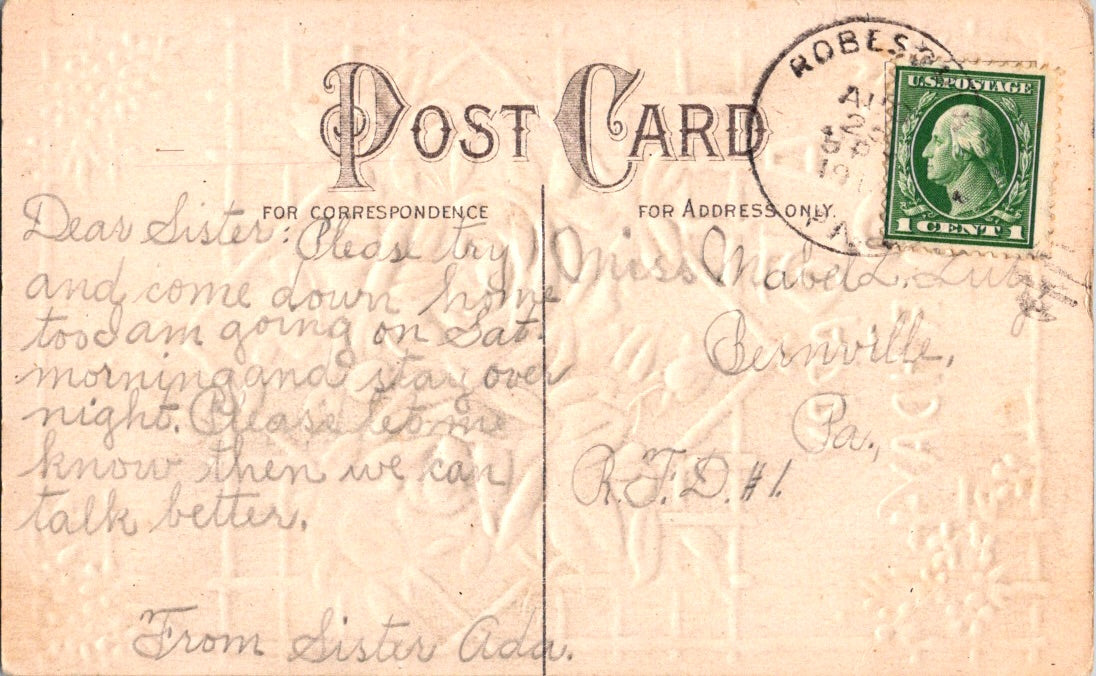 POST CARD
FOR CORRESPONDENCE
FOR ADDRESS ONLY.
U.S. POSTAGE
1 CENT 1
Dear Sister: Please try
and come down home
too I am going on Sat.
morning and stay over
night. Please let me
know then we can
talk better.
From Sister Ada.
Miss Mabel L. Lutz
Bernville,
Pa.,
R.F.D. #1.